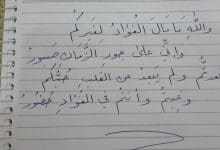 واللهِ ما مالَ الفؤادُ لغيركُم
وإني على جورِ الزمان صبورُ
غدرتُم ولم يبعد عن القلب حبُّكُم
وغبتُم وأنتُم في الفؤادِ حضورُ